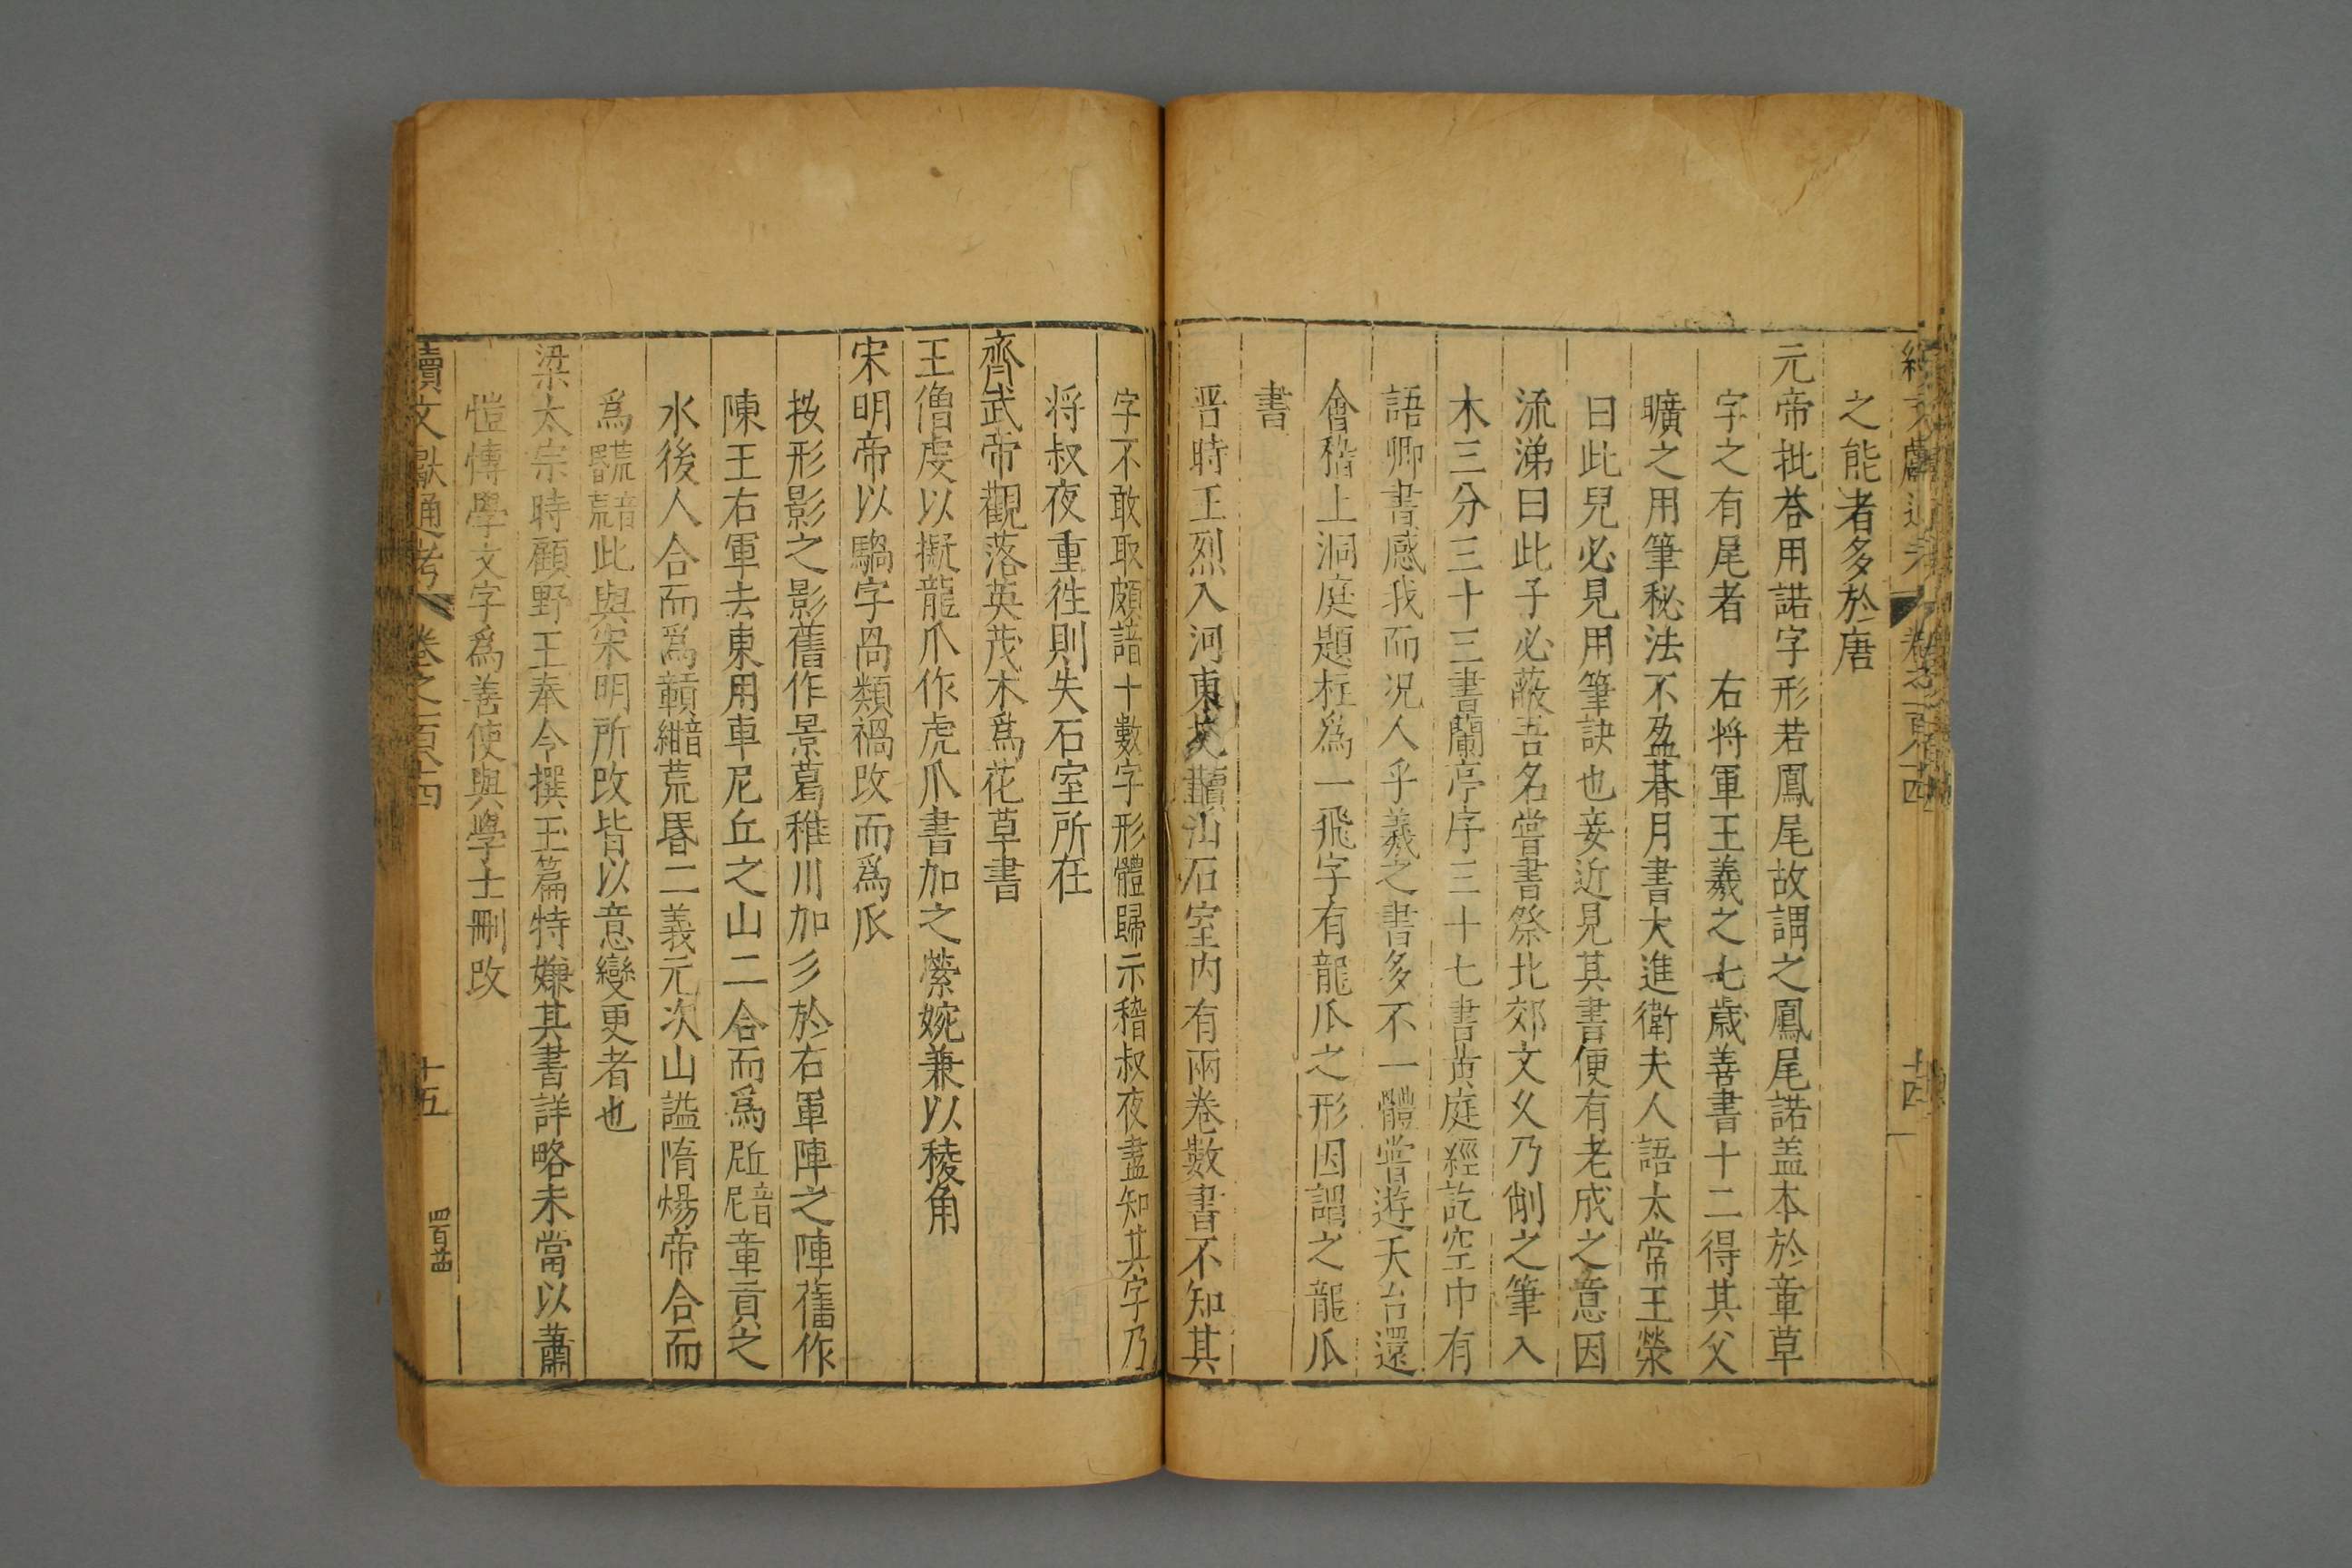 續文獻通考 卷之一百八十四 十四
之能者多於唐
元帝批荅用諾字形若鳳尾故謂之鳳尾諾盖本於章草
字之有尾者 右将軍王羲之七歲善書十二得其父
曠之用筆秘法不盈朞月書大進衛夫人語太常王榮
曰此兒必見用筆訣也妾近見其書便有老成之意因
流涕曰此子必蔽吾名嘗書祭北郊文父乃削之筆入
木三分三十三書蘭亭序三十七書黄庭經訖空中有
語卿書感我而况人乎羲之書多不一體嘗遊天台還
會稽上洞庭題柱為一飛字有龍爪之形因謂之龍爪
書
晋時王烈入河東抱犢山石室内有兩卷數書不知其
字不敢取頗諳十數字形體歸示稽叔夜盡知其字乃
将叔夜重徃則失石室所在
齊武帝觀落英茂木爲花草書
王僧虔以擬龍爪作虎爪書加之縈婉兼以稜角
宋明帝以騧字咼類禍改而爲瓜
按形影之影舊作景葛稚川加彡於右軍陣之陣舊作
陳王右軍去東用車尼丘之山二合而爲𡰥音尼章貢之
水後人合而爲贑音紺荒昬二義元次山謚隋煬帝合而
爲音荒此與宋明所改皆以意變更者也
梁太宗時顧野王奉令撰玉篇特嫌其書詳略未當以蕭
愷慱學文字爲善使與學士刪改
續文獻通考 卷之 十五 四百廿四